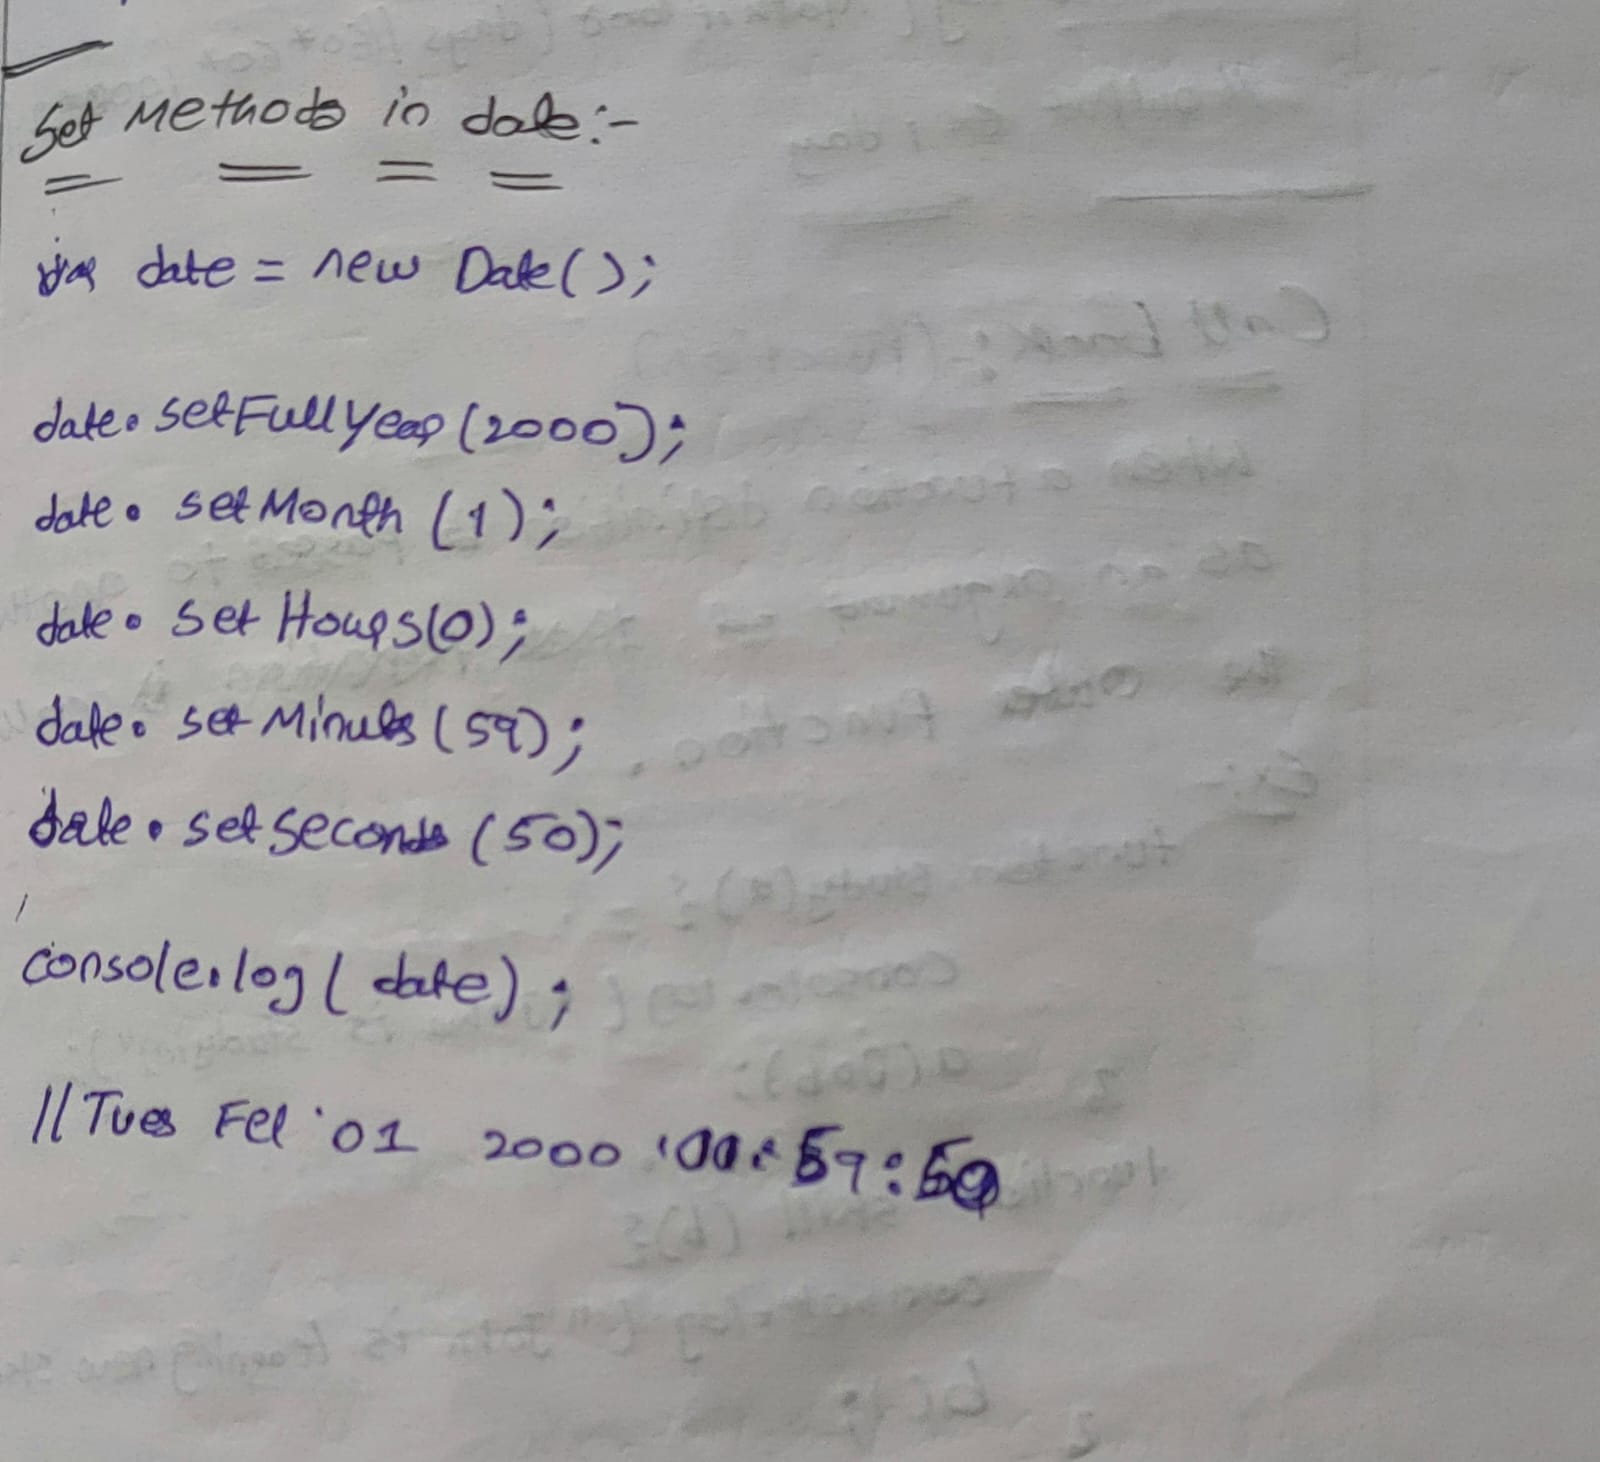 Set Methods in date:-
var date = new Date();
date.setFullYear(2000);
date.setMonth(1);
date.setHours(0);
date.setMinutes(59);
date.setSeconds(50);
console.log(date);
//Tues Feb 01 2000 00:59:50